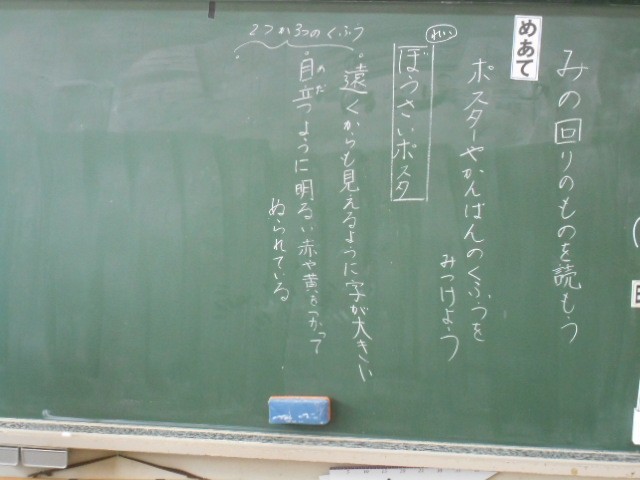 みの回りのものを読もう
めあて
ポスターやかんばんのくふうを
みつけよう
れい
ぼうさいポスター
2つか3つのくふう
・遠くからも見えるように字が大きい
・目立つように明るい赤や黄をつかって
めだ
ぬられている
・